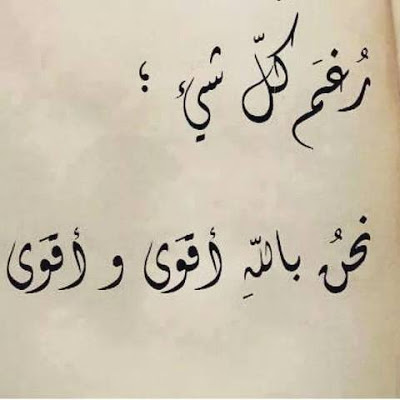 رُغمَ كلّ شيْء ؛
نحنُ باللّهِ أقوَى و أقوَى